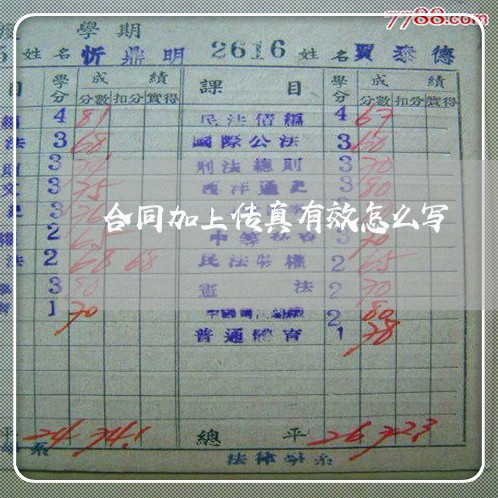 7788.com
學期
姓名 忻鼎明 2616 姓名 賈泰德
目 學分 成績 課目 學分 成績
分數 扣分 實得 分數 扣分 實得
4 81 民法債編 4 67
法 3 68 國際公法 3 60
3 刑法總則 3 70
3 75 西洋通史 3 80
合同加上传真有效怎么写
2 3 70
法 2 68 68 民法物權 2 65
3 80 憲法 2 70
1 70 2 80
普通體育 1 78
平 24 74.1 總平 26 72.3
系 法律學系